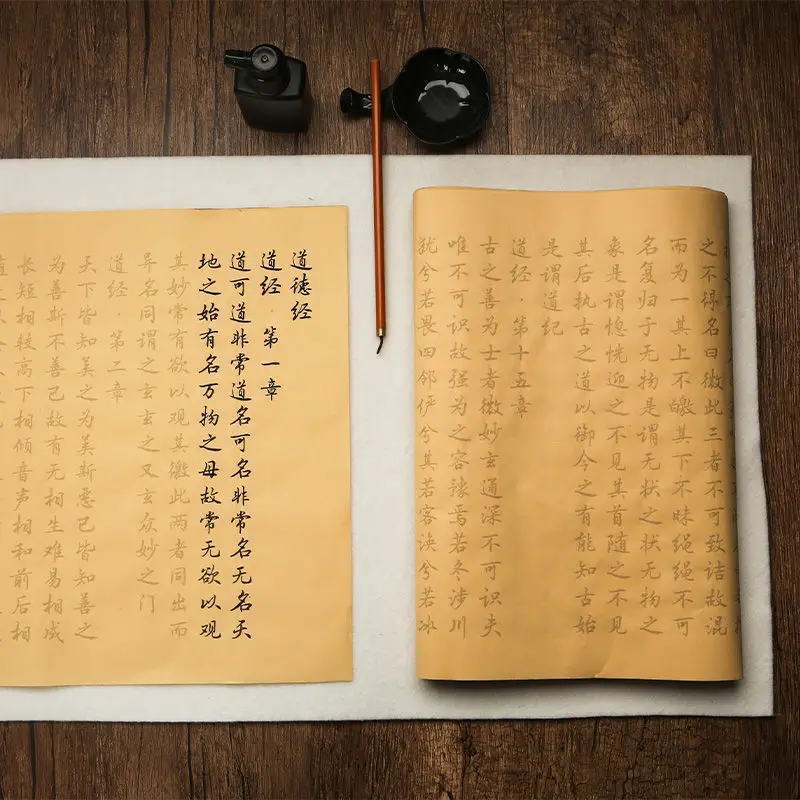 道德经
道经·第一章
道可道非常道名可名非常名无名天
地之始有名万物之母故常无欲以观
其妙常有欲以观其徼此两者同出而
异名同谓之玄玄之又玄众妙之门
道经·第二章
天下皆知美之为美斯恶已皆知善之
为善斯不善已故有无相生难易相成
长短相较高下相倾音声相和前后相
之不得名曰微此三者不可致诘故混
而为一其上不皦其下不昧绳绳不可
名复归于无物是谓无状之状无物之
象是谓惚恍迎之不见其首随之不见
其后执古之道以御今之有能知古始
是谓道纪
道经·第十五章
古之善为士者微妙玄通深不可识夫
唯不可识故强为之容豫焉若冬涉川
犹兮若畏四邻俨兮其若客涣兮若冰